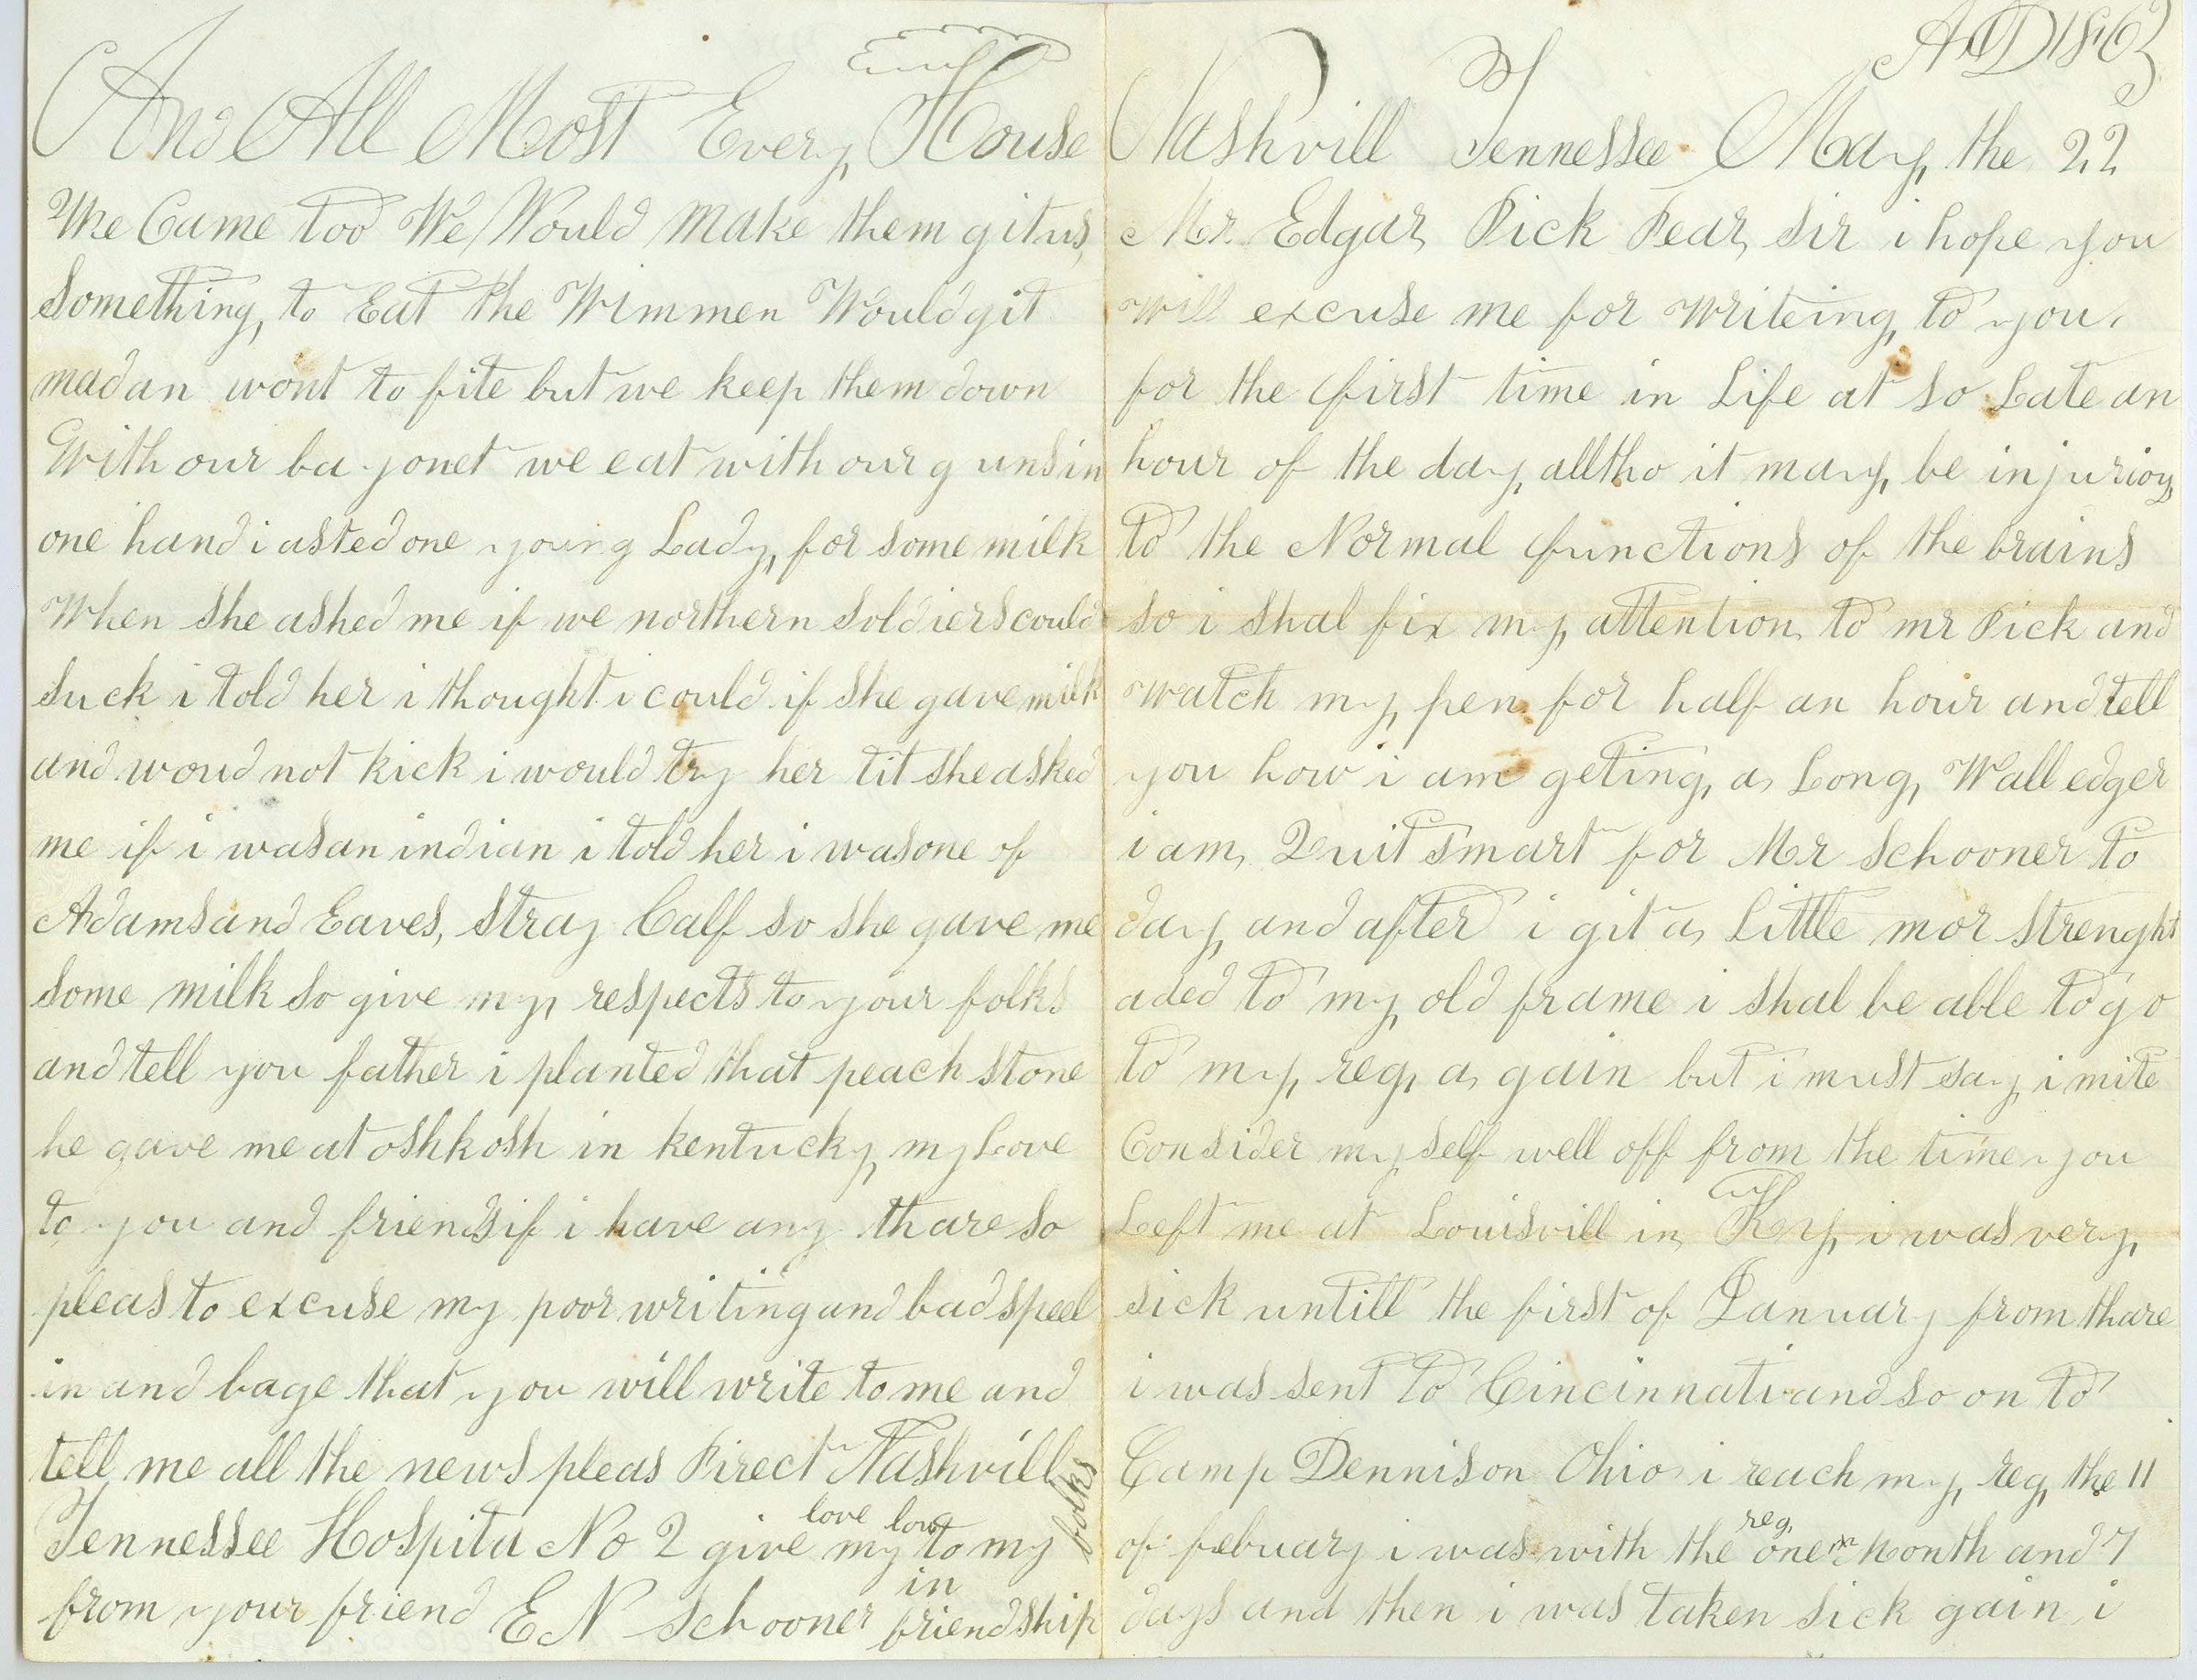 AD 1863
Nashvill Tennessee May, the 22
Mr. Edgar, Pick Dear, Sir i hope you
will excuse me for Writeing, to you,
for the first time in Life at so Late an
hour of the day, alltho it may, be injuriou,
to the Normal functions of the brains
so i shal fix my, attention, to mr Pick and
Watch my, pen for half an hour and tell
you how i am geting, a, Long, Wall edger
i am, Quit Smart for Mr Schooner to
day, and after i git a, Little mor strenght
aded to my, old frame i shal be able to go
to my, reg, a, gain but i must say, i mite
Consider my, self well off from the time you
Left me at Louisvill in, Ky, i was very,
sick untill the first of January from thare
i was sent to Cincinnati and so on to
Camp Dennison Ohio i reach my, reg, the 11
of febuary i was with the reg, one month and 7
days and then i was taken sick gain i
And All Most Every, House
We Came too We Would Make them git us,
Something, to Eat the Wimmen Would git
mad an wont to fite but we keep them down
With our ba yonet we eat with our g uns in
one hand i asted one young Lady, for some milk
When she ashed me if we northern Soldiers could
suck i told her i thought i could if she gave milk
and woud not kick i would try her tit she asked
me if i was an indian i told her i was one of
Adams and Eaves, Stray Calf so she gave me
some milk so give my, respects to your folks
and tell you father i planted that peach stone
he gave me at oshkosh in kentucky, my Love
to you and friends if i have any thare so
pleas to excuse my poor writing and bad speel
in and bage that you will write to me and
tell me all the news pleas Direct Nashvill
Tennessee Hospita No 2 give my love love to my folks
from your friend E N Schooner in friendship